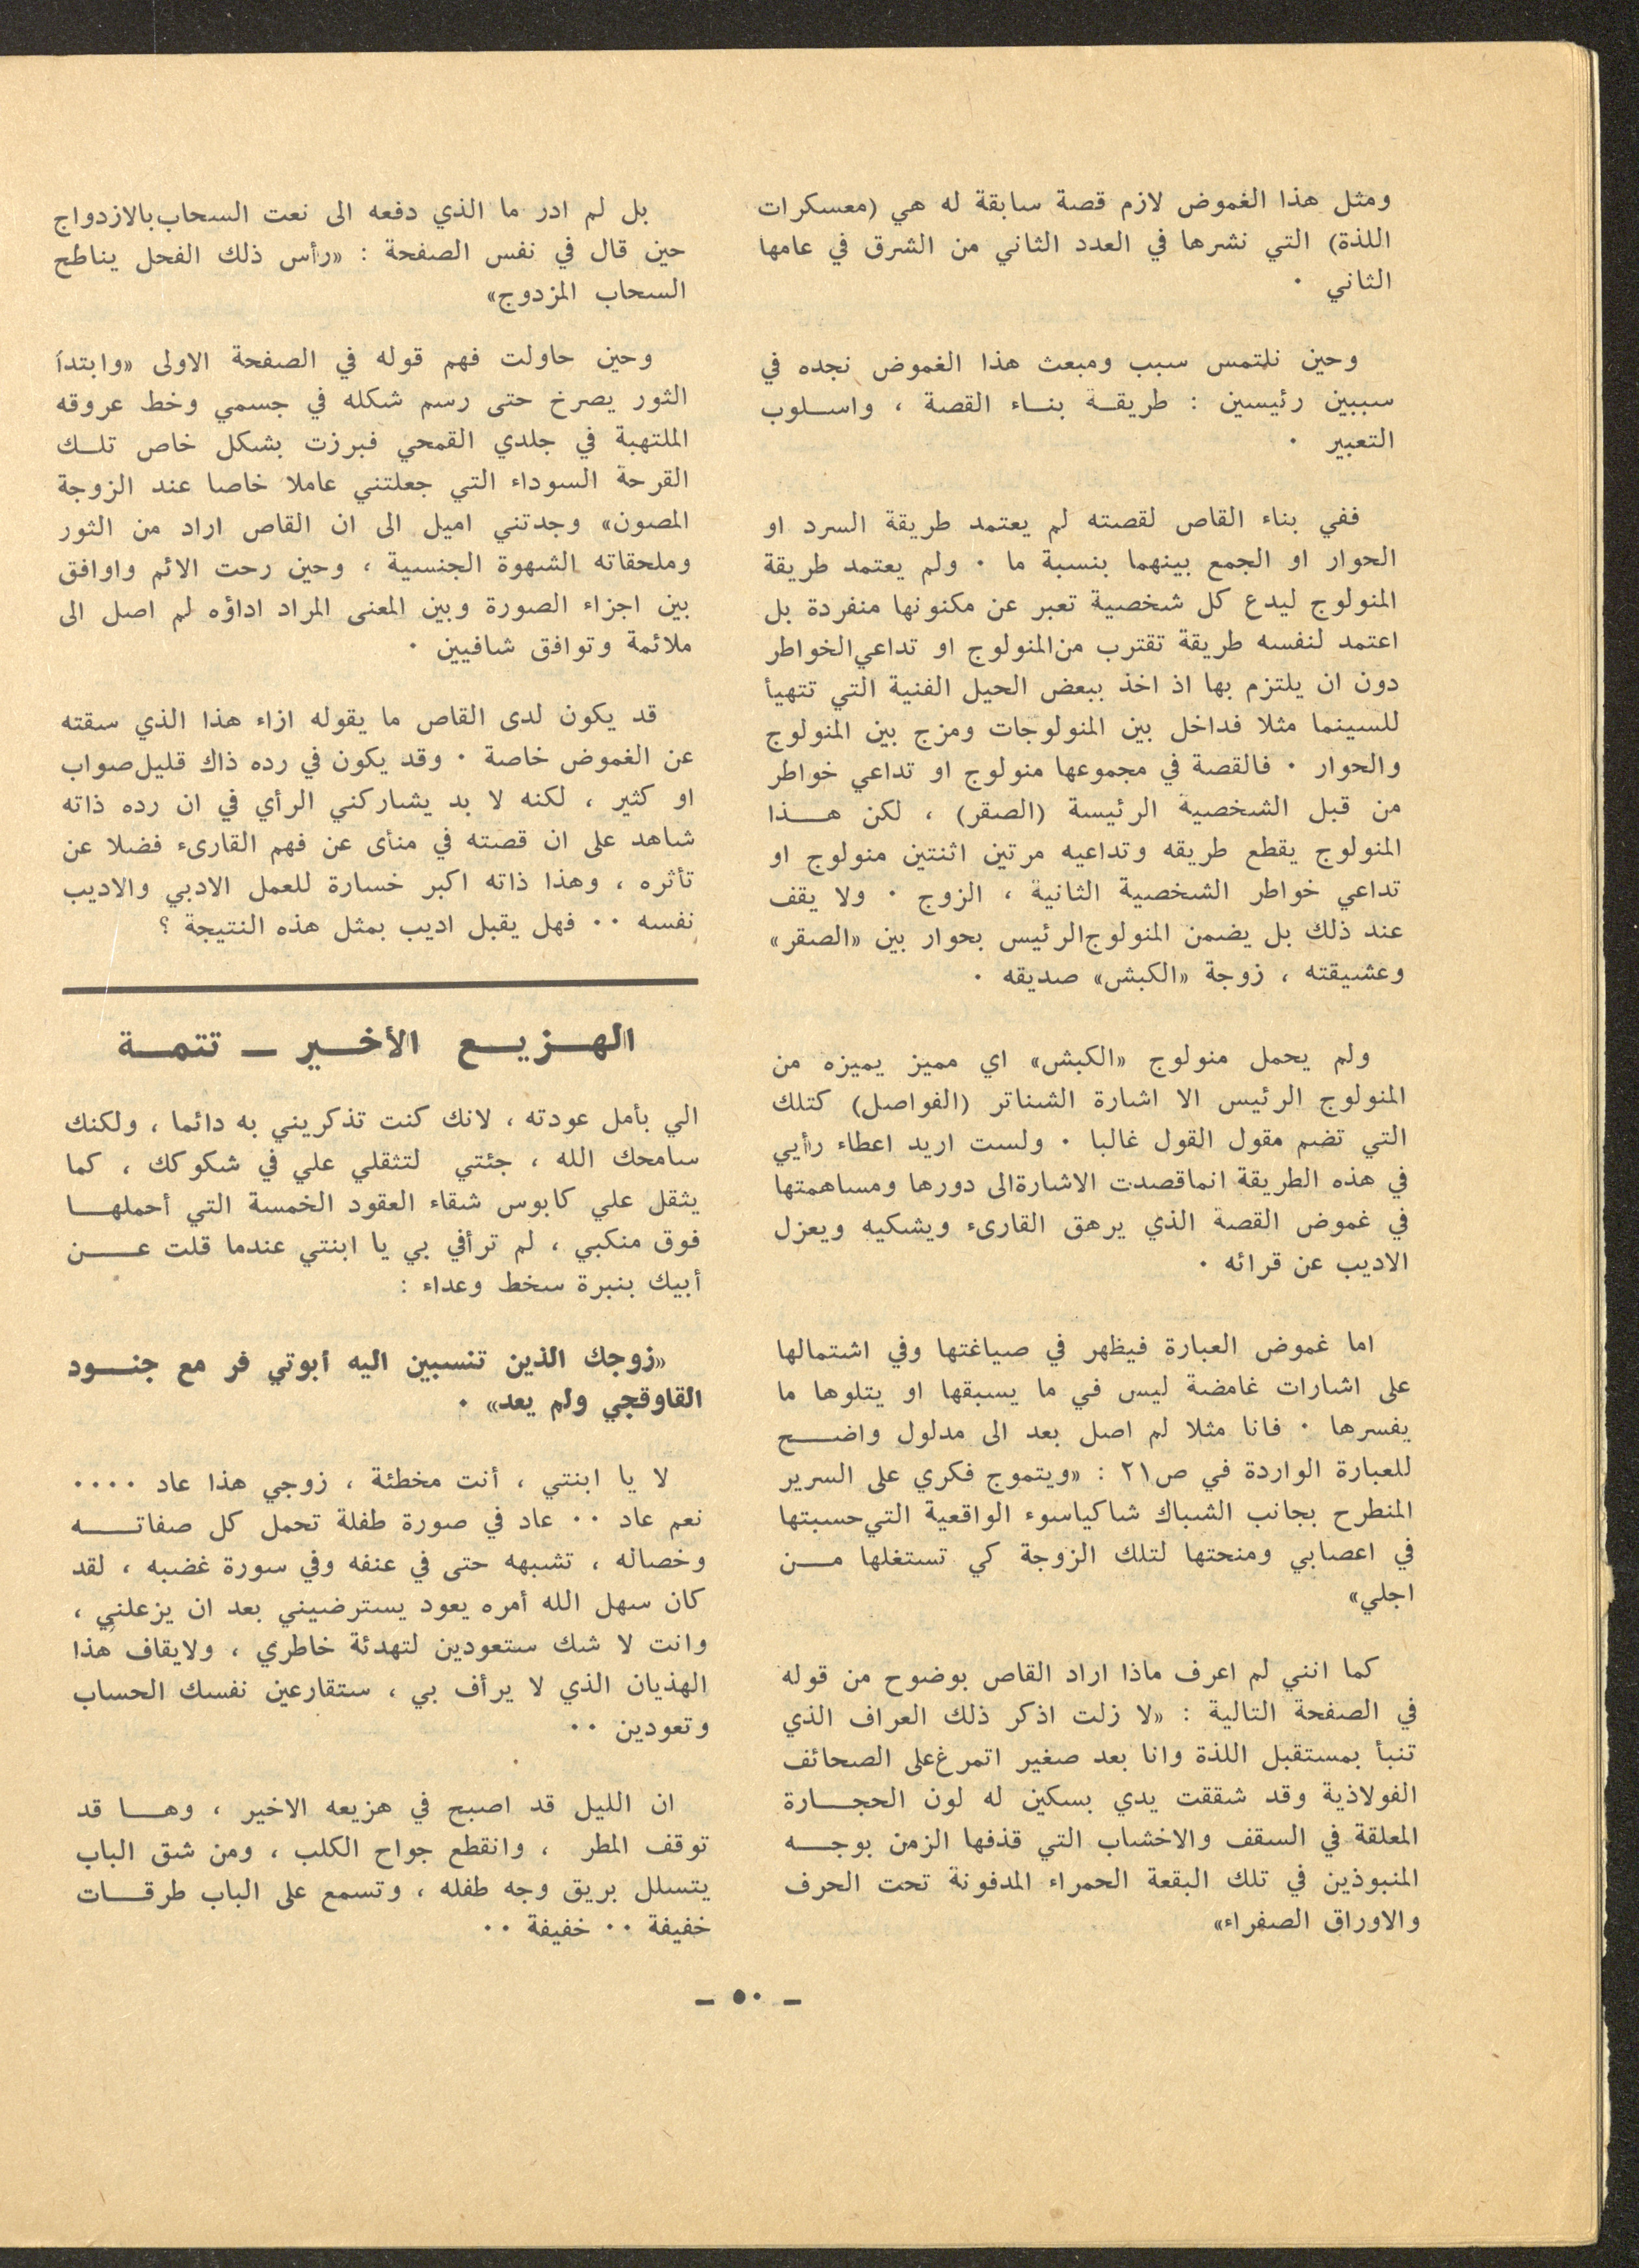 ومثل هذا الغموض لازم قصة سابقة له هي (معسكرات
اللذة) التي نشرها في العدد الثاني من الشرق في عامها
الثاني ٠
وحين نلتمس سبب ومبعث هذا الغموض نجده في
سببين رئيسين : طريقة بناء القصة ، واسلوب
التعبير ٠
ففي بناء القاص لقصته لم يعتمد طريقة السرد او
الحوار او الجمع بينهما بنسبة ما ٠ ولم يعتمد طريقة
المنولوج ليدع كل شخصية تعبر عن مكنونها منفردة بل
اعتمد لنفسه طريقة تقترب من المنولوج او تداعي الخواطر
دون ان يلتزم بها اذ اخذ ببعض الحيل الفنية التي تتهيأ
للسينما مثلا فداخل بين المنولوجات ومزج بين المنولوج
والحوار ٠ فالقصة في مجموعها منولوج او تداعي خواطر
من قبل الشخصية الرئيسة (الصقر) ، لكن هذا
المنولوج يقطع طريقه وتداعيه مرتين اثنتين منولوج او
تداعي خواطر الشخصية الثانية ، الزوج ٠ ولا يقف
عند ذلك بل يضمن المنولوج الرئيس بحوار بين «الصقر»
وعشيقته ، زوجة «الكبش» صديقه ٠
ولم يحمل منولوج «الكبش» اي مميز يميزه من
المنولوج الرئيس الا اشارة الشناتر (الفواصل) كتلك
التي تضم مقول القول غالبا ٠ ولست اريد اعطاء رأيي
في هذه الطريقة انما قصدت الاشارة الى دورها ومساهمتها
في غموض القصة الذي يرهق القارىء ويشكيه ويعزل
الاديب عن قرائه ٠
اما غموض العبارة فيظهر في صياغتها وفي اشتمالها
على اشارات غامضة ليس في ما يسبقها او يتلوها ما
يفسرها ٠ فانا مثلا لم اصل بعد الى مدلول واضح
للعبارة الواردة في ص٢١ : «ويتموج فكري على السرير
المنطرح بجانب الشباك شاكيا سوء الواقعية التي حسبتها
في اعصابي ومنحتها لتلك الزوجة كي تستغلها من
اجلي»
كما انني لم اعرف ماذا اراد القاص بوضوح من قوله
في الصفحة التالية : «لا زلت اذكر ذلك العراف الذي
تنبأ بمستقبل اللذة وانا بعد صغير اتمرغ على الصحائف
الفولاذية وقد شققت يدي بسكين له لون الحجارة
المعلقة في السقف والاخشاب التي قذفها الزمن بوجه
المنبوذين في تلك البقعة الحمراء المدفونة تحت الحرف
والاوراق الصفراء»
بل لم ادر ما الذي دفعه الى نعت السحاب بالازدواج
حين قال في نفس الصفحة : «رأس ذلك الفحل يناطح
السحاب المزدوج»
وحين حاولت فهم قوله في الصفحة الاولى «وابتدأ
الثور يصرخ حتى رسم شكله في جسمي وخط عروقه
الملتهبة في جلدي القمحي فبرزت بشكل خاص تلك
القرحة السوداء التي جعلتني عاملا خاصا عند الزوجة
المصون» وجدتني اميل الى ان القاص اراد من الثور
وملحقاته الشهوة الجنسية ، وحين رحت الائم واوافق
بين اجزاء الصورة وبين المعنى المراد اداؤه لم اصل الى
ملائمة وتوافق شافيين ٠
قد يكون لدى القاص ما يقوله ازاء هذا الذي سقته
عن الغموض خاصة ٠ وقد يكون في رده ذاك قليل صواب
او كثير ، لكنه لا بد يشاركني الرأي في ان رده ذاته
شاهد على ان قصته في منأى عن فهم القارىء فضلا عن
تأثره ، وهذا ذاته اكبر خسارة للعمل الادبي والاديب
نفسه ٠٠ فهل يقبل اديب بمثل هذه النتيجة ؟
الهزيع الأخير ــ تتمة
الي بأمل عودته ، لانك كنت تذكريني به دائما ، ولكنك
سامحك الله ، جئتي لتثقلي علي في شكوكك ، كما
يثقل علي كابوس شقاء العقود الخمسة التي أحملها
فوق منكبي ، لم ترأفي بي يا ابنتي عندما قلت عن
أبيك بنبرة سخط وعداء :
«زوجك الذين تنسبين اليه أبوتي فر مع جنود
القاوقجي ولم يعد» ٠
لا يا ابنتي ، أنت مخطئة ، زوجي هذا عاد ٠٠٠٠
نعم عاد ٠٠ عاد في صورة طفلة تحمل كل صفاته
وخصاله ، تشبهه حتى في عنفه وفي سورة غضبه ، لقد
كان سهل الله أمره يعود يسترضيني بعد ان يزعلني ،
وانت لا شك ستعودين لتهدئة خاطري ، ولايقاف هذا
الهذيان الذي لا يرأف بي ، ستقارعين نفسك الحساب
وتعودين ٠٠
ان الليل قد اصبح في هزيعه الاخير ، وها قد
توقف المطر ، وانقطع جواح الكلب ، ومن شق الباب
يتسلل بريق وجه طفله ، وتسمع على الباب طرقات
خفيفة ٠٠ خفيفة ٠٠
ــ ٥٠ ــ